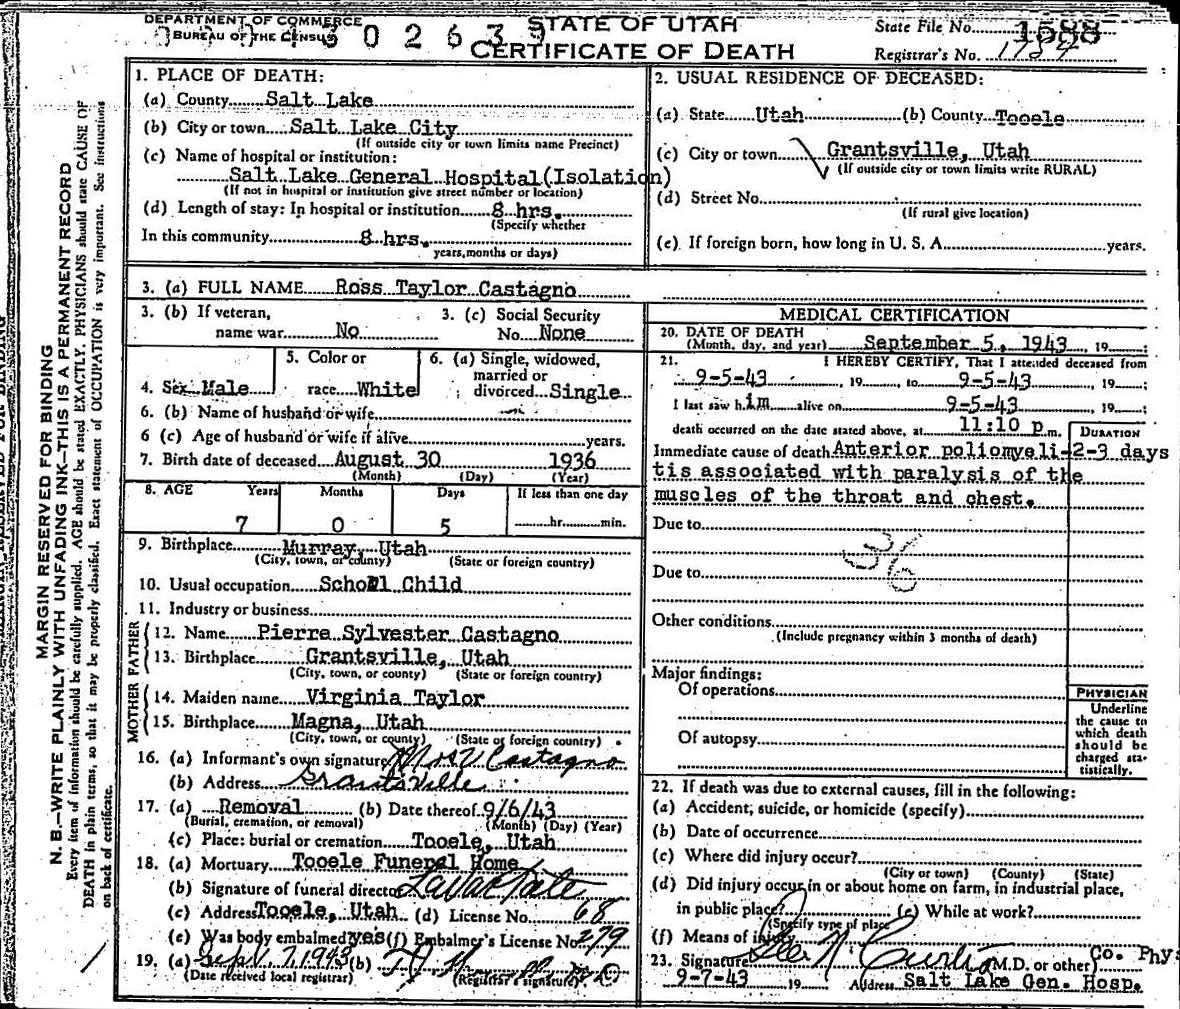 DEPARTMENT OF COMMERCE
BUREAU OF THE CENSUS
3 0 2 6 3 9
STATE OF UTAH
CERTIFICATE OF DEATH
State File No. 1588
Registrar's No. 1784
MARGIN RESERVED FOR BINDING
N. B.—WRITE PLAINLY WITH UNFADING INK—THIS IS A PERMANENT RECORD
Every item of information should be carefully supplied. AGE should be stated EXACTLY. PHYSICIANS should state CAUSE OF
DEATH in plain terms, so that it may be properly classified. Exact statement of OCCUPATION is very important. See instructions
on back of certificate.
1. PLACE OF DEATH:
(a) County Salt Lake
(b) City or town Salt Lake City
(If outside city or town limits name Precinct)
(c) Name of hospital or institution:
Salt Lake General Hospital (Isolation)
(If not in hospital or institution give street number or location)
(d) Length of stay: In hospital or institution 8 hrs.
(Specify whether
In this community 8 hrs.
years, months or days)
2. USUAL RESIDENCE OF DECEASED:
(a) State Utah (b) County Tooele
(c) City or town Grantsville, Utah
(If outside city or town limits write RURAL)
(d) Street No.
(If rural give location)
(e) If foreign born, how long in U. S. A. years.
3. (a) FULL NAME Ross Taylor Castagno
3. (b) If veteran,
name war No
3. (c) Social Security
No. None
4. Sex Male
5. Color or
race White
6. (a) Single, widowed,
married or
divorced Single
6. (b) Name of husband or wife
6 (c) Age of husband or wife if alive years.
7. Birth date of deceased August 30 1936
(Month) (Day) (Year)
8. AGE Years Months Days If less than one day
7 0 5 hr. min.
9. Birthplace Murray, Utah
(City, town, or county) (State or foreign country)
10. Usual occupation School Child
11. Industry or business
FATHER
12. Name Pierre Sylvester Castagno
13. Birthplace Grantsville, Utah
(City, town, or county) (State or foreign country)
MOTHER
14. Maiden name Virginia Taylor
15. Birthplace Magna, Utah
(City, town, or county) (State or foreign country)
16. (a) Informant's own signature Mrs V Castagno
(b) Address Grantsville
17. (a) Removal (b) Date thereof 9/6/43
(Burial, cremation, or removal) (Month) (Day) (Year)
(c) Place: burial or cremation Tooele, Utah
18. (a) Mortuary Tooele Funeral Home
(b) Signature of funeral director Tate
(c) Address Tooele, Utah (d) License No. 68
(e) Was body embalmed? yes (f) Embalmer's License No. 279
19. (a) Sept 7, 1943 (b)
(Date received local registrar) (Registrar's signature)
MEDICAL CERTIFICATION
20. DATE OF DEATH
(Month, day, and year) September 5, 1943, 19 ;
21. I HEREBY CERTIFY, That I attended deceased from
9-5-43, 19 to 9-5-43, 19 ;
I last saw him alive on 9-5-43, 19 ;
death occurred on the date stated above, at 11:10 p.m.
DURATION
Immediate cause of death Anterior poliomyeli- 2-3 days
tis associated with paralysis of the
muscles of the throat and chest.
Due to
36
Due to
Other conditions
(Include pregnancy within 3 months of death)
Major findings:
Of operations
Of autopsy
PHYSICIAN
Underline
the cause to
which death
should be
charged sta-
tistically.
22. If death was due to external causes, fill in the following:
(a) Accident, suicide, or homicide (specify)
(b) Date of occurrence
(c) Where did injury occur?
(City or town) (County) (State)
(d) Did injury occur in or about home on farm, in industrial place,
in public place? (e) While at work?
(Specify type of place)
(f) Means of injury
23. Signature N. Curtis (M.D. or other) Co. Phys
9-7-43 19 Address Salt Lake Gen. Hosp.